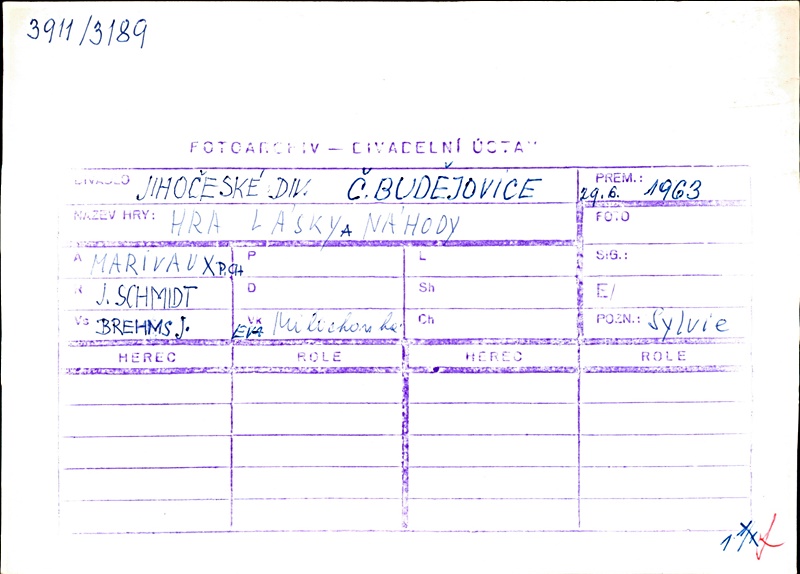 3911/3189
FOTOARCHIV — DIVADELNÍ ÚSTAV
DIVADLO JIHOČESKÉ DIV. Č. BUDĚJOVICE PREM.: 29.6. 1963
NÁZEV HRY: HRA LÁSKY A NÁHODY FOTO
A MARIVAUX P.CH P L SIG.:
R J. SCHMIDT D Sh E/
Vs BREHMS J. Vk EVA Ch POZN.: Sylvie
HEREC ROLE HEREC ROLE